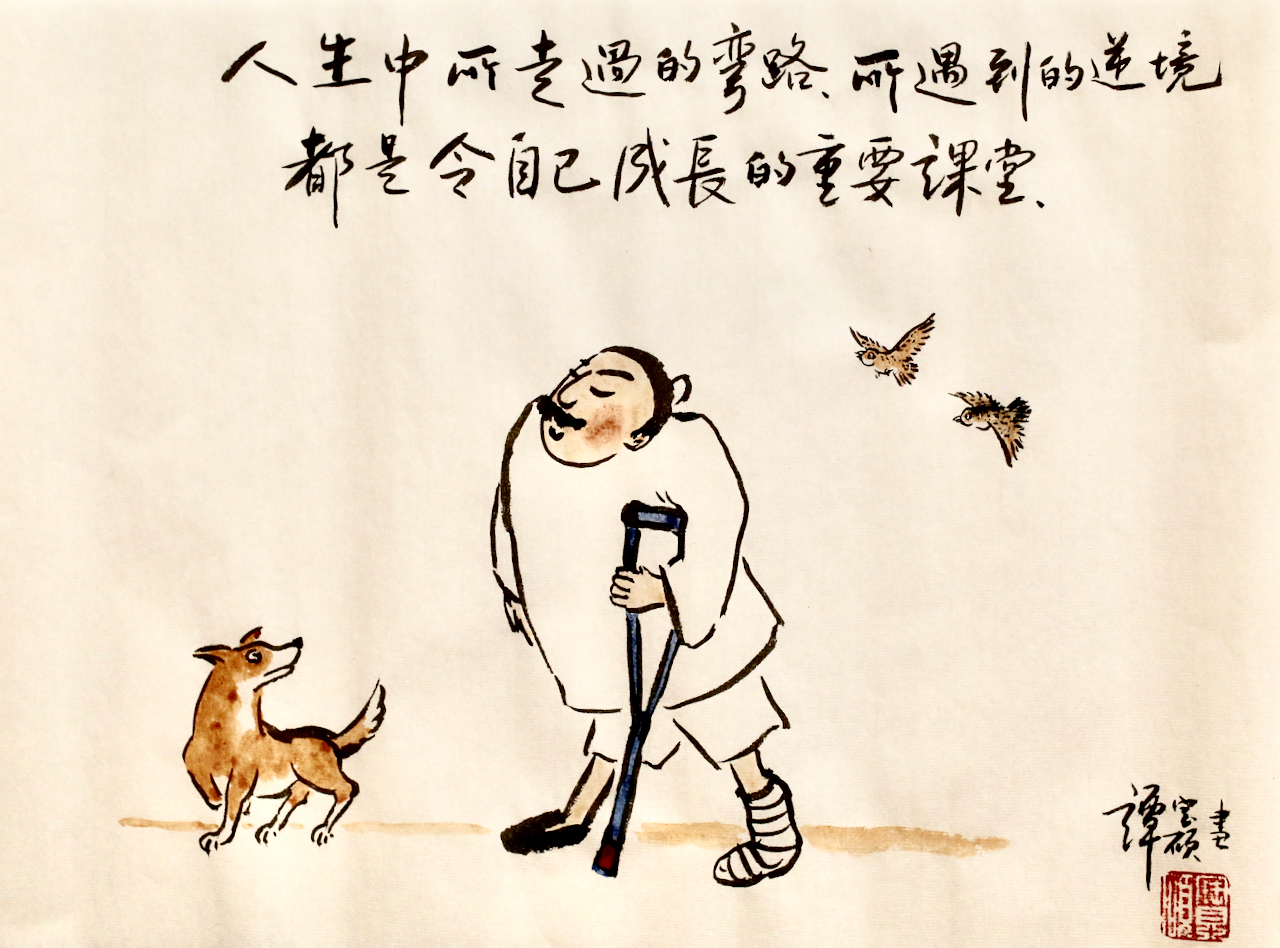 人生中所走過的彎路、所遇到的逆境
都是令自己成長的重要課堂、
譚寶碩畫